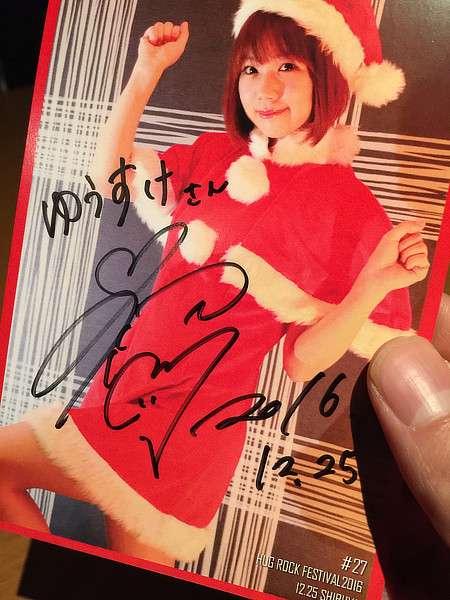 ゆうすけさん
2016
12.25
#27
HUG ROCK FESTIVAL2016
12.25 SHIBUYA